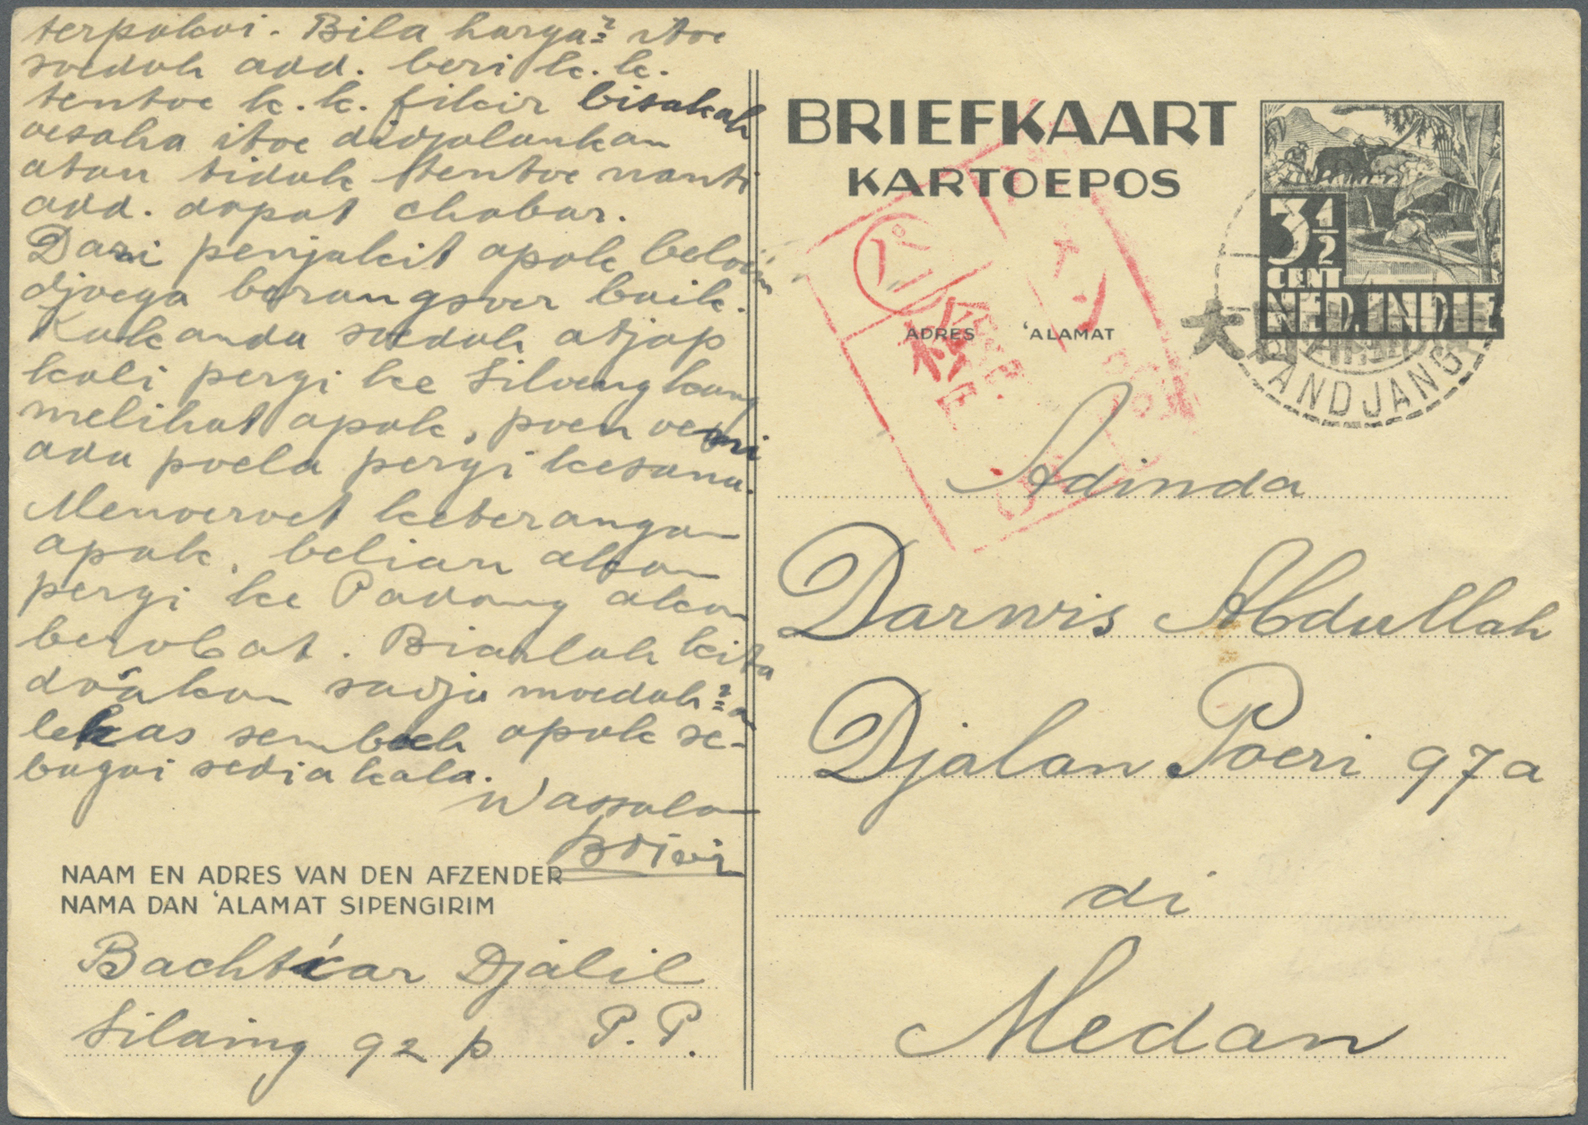 terpakai. Bila harga² itoe
soedah add. beri k.k.
tentoe k.k. fikir bisakah
oesaha itoe didjalankan
atau tidak tentoe nanti
add. dapat chabar.
Dari penjakit apak beloem
djoega berangsoer baik.
Kakanda soedah atjap
kali pergi ke Siloengkang
melihat apak, poen oepri
ada poela pergi kesana.
Menoeroet keterangan
apak, beliau akan
pergi ke Padang akan
berobat. Biarlah kita
do'akan sadja moedah²an
lekas semboeh apak se-
bagai sediakala.
Wassalam
NAAM EN ADRES VAN DEN AFZENDER
NAMA DAN 'ALAMAT SIPENGIRIM
Bachtiar Djalil
Silaing 92 p P.P.
BRIEFKAART
KARTOEPOS
3½
CENT
NED. INDIE
大日本
PANDJANG
ADRES 'ALAMAT
Adinda
Darwis Abdullah
Djalan Poeri 97a
di
Medan